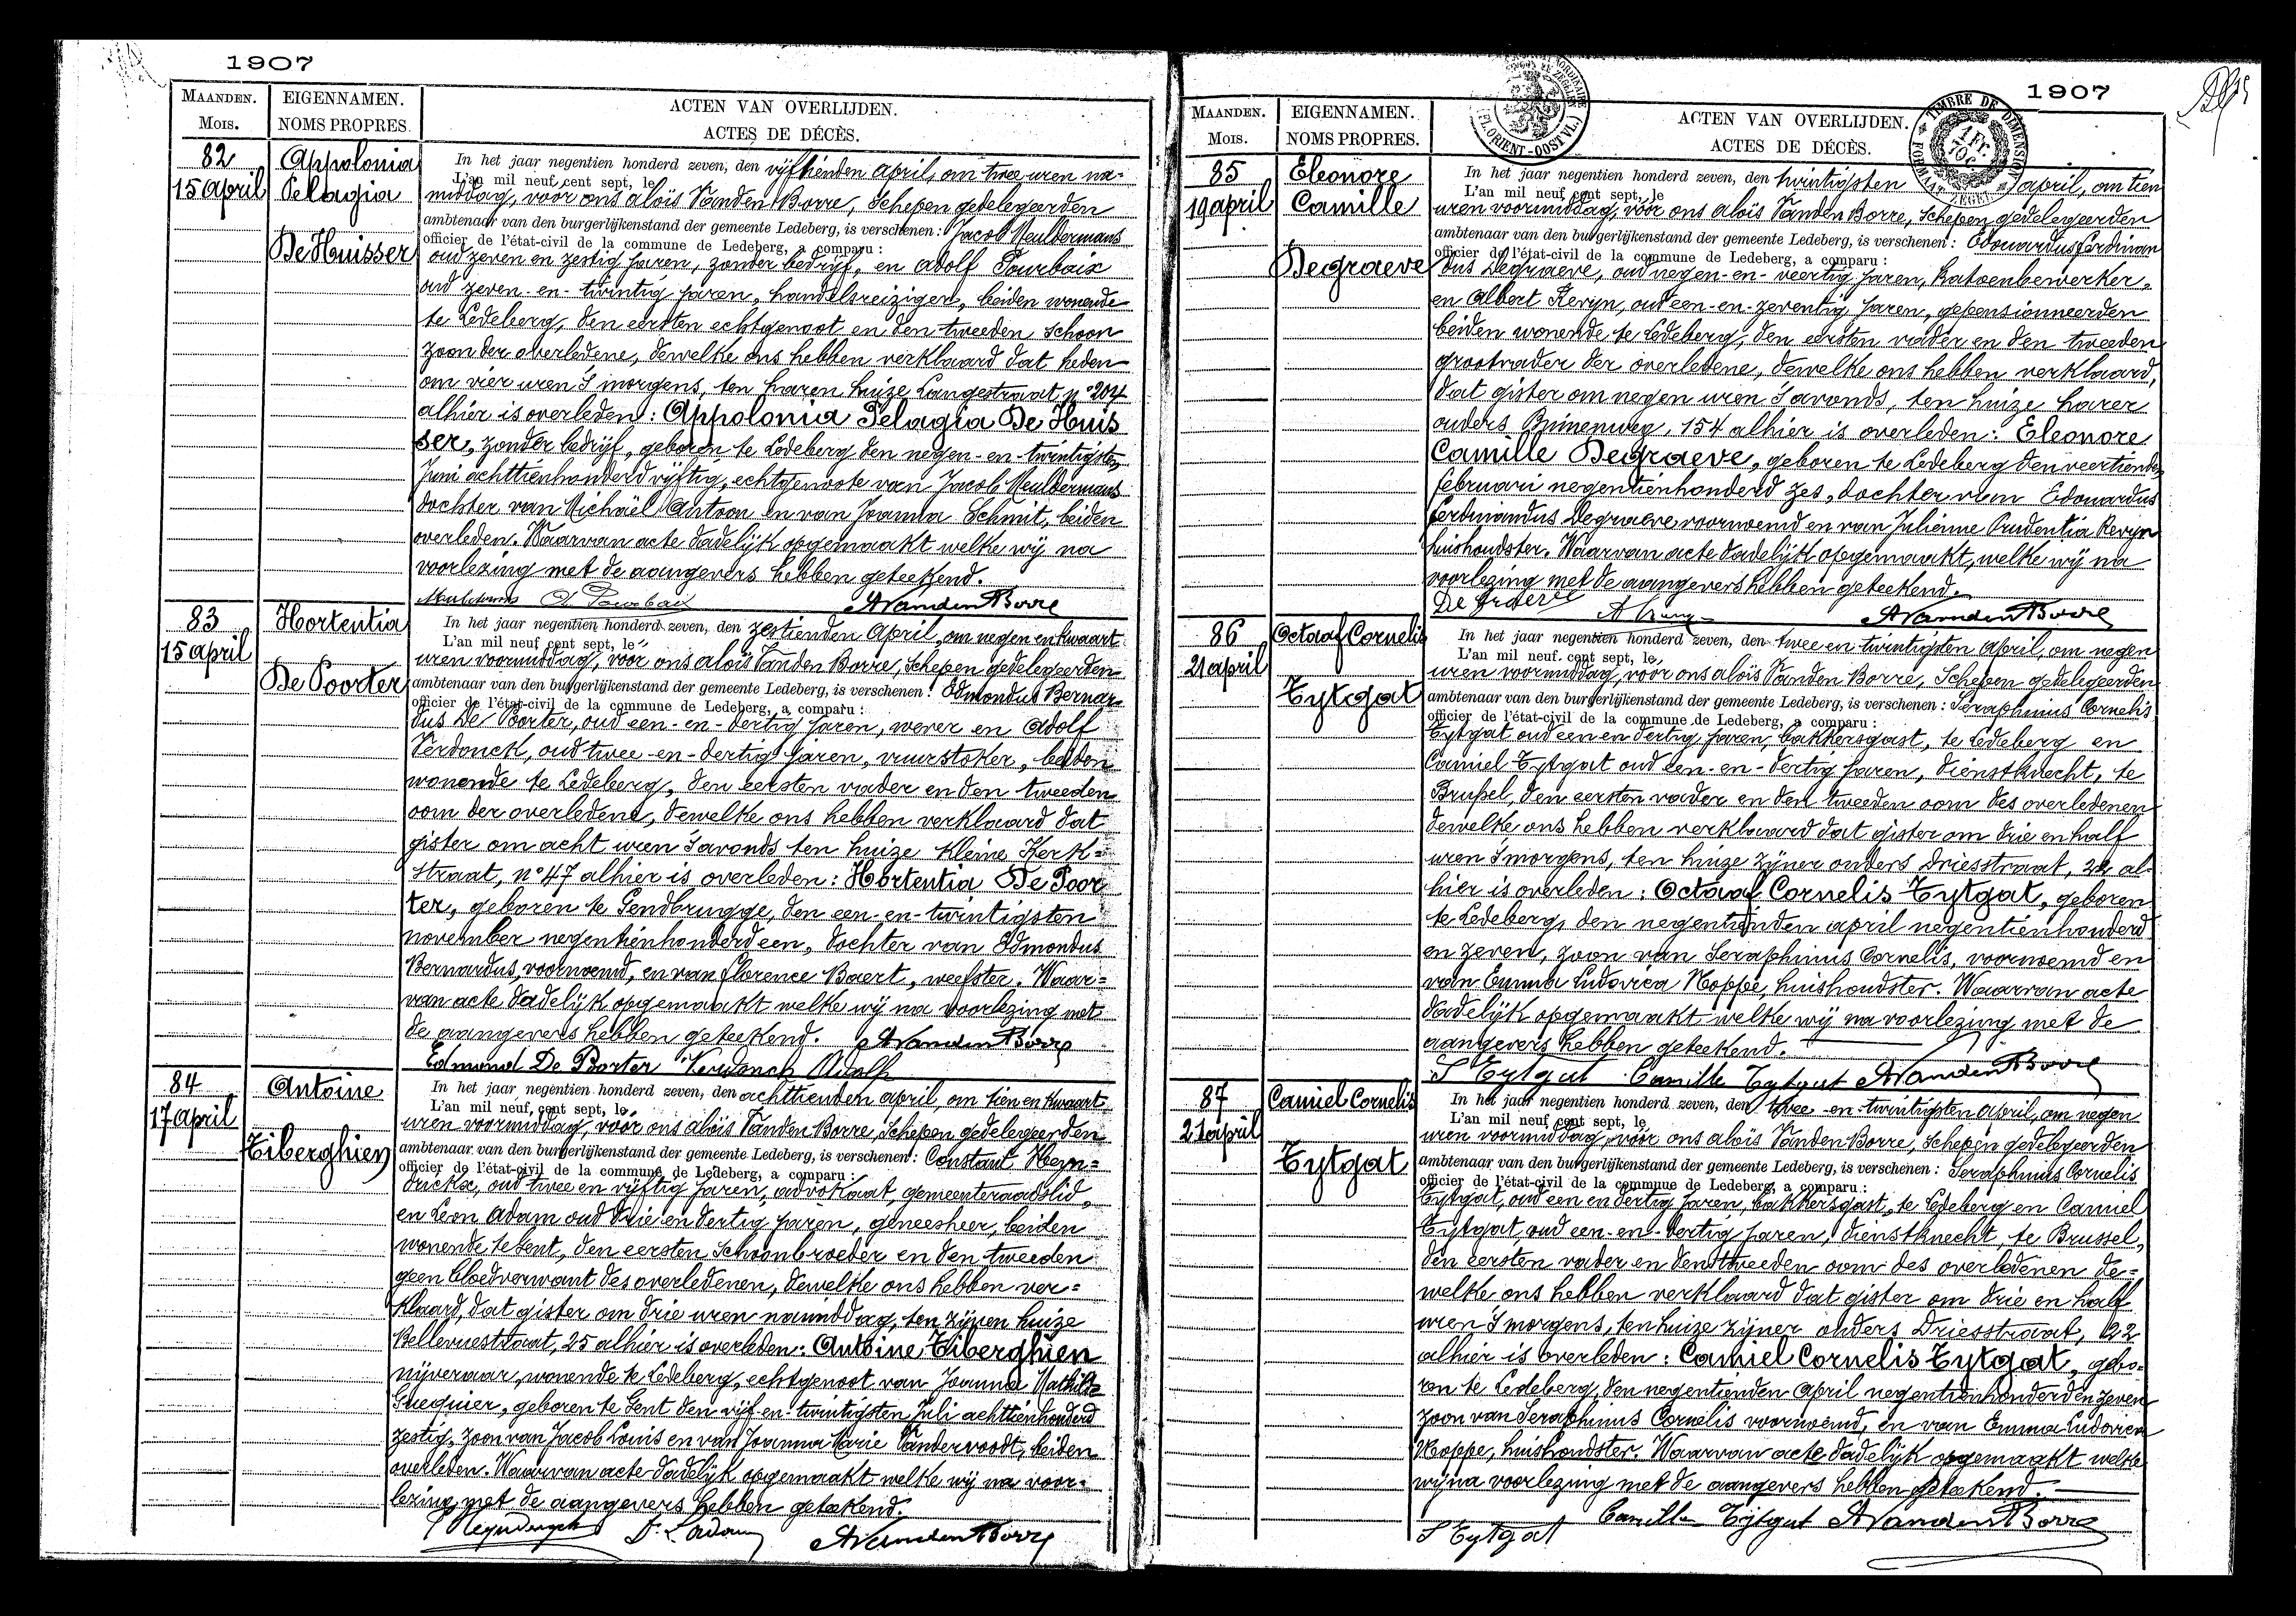 1907
MAANDEN. EIGENNAMEN. ACTEN VAN OVERLIJDEN.
MOIS. NOMS PROPRES. ACTES DE DÉCÈS.
82
15 april
Appolonia
Pelagia
De Huisser
In het jaar negentien honderd zeven, den vijftienden april, om twee uren na=
L'an mil neuf cent sept, le
middag, voor ons aloïs Vanden Borre, Schepen gedelegeerden
ambtenaar van den burgerlijkenstand der gemeente Ledeberg, is verschenen: Jacob Meuldermans
officier de l'état-civil de la commune de Ledeberg, a comparu:
oud zeven en zestig jaren, zonder bedrijf, en adolf Pourbaix
oud zeven-en-twintig jaren, handelsreiziger, beiden wonende
te Ledeberg, den eersten echtgenoot en den tweeden schoon
zoon der overledene, dewelke ons hebben verklaard dat heden
om vier uren 's morgens, ten haren huize Langestraat, n° 204
alhier is overleden: Appolonia Pelagia De Huis
ser, zonder bedrijf, geboren te Ledeberg den negen-en-twintigsten
Juni achttienhonderd vijftig, echtgenoote van Jacob Meuldermans
dochter van Michaël Antoon en van Joanna Schmit, beiden
overleden. Waarvan acte dadelijk opgemaakt welke wij na
voorlezing met de aangevers hebben geteekend.
A Pourbaix AVandenBorre
83
15 april
Hortentia
De Poorter
In het jaar negentien honderd zeven, den zestienden april, om negen en kwaart
L'an mil neuf cent sept, le
uren voormiddag, voor ons aloïs Vanden Borre, Schepen gedelegeerden
ambtenaar van den burgerlijkenstand der gemeente Ledeberg, is verschenen: Edmondus Bernar=
officier de l'état-civil de la commune de Ledeberg, a comparu:
dus De Poorter, oud een-en-dertig jaren, wever en adolf
Verdonck, oud twee-en-dertig jaren, vuurstoker, beiden
wonende te Ledeberg, den eersten vader en den tweeden
oom der overledene, dewelke ons hebben verklaard dat
gister om acht uren 's avonds ten huize kleine Kerk=
straat, n° 47 alhier is overleden: Hortentia De Poor
ter, geboren te Gendbrugge, den een-en-twintigsten
november negentienhonderd een, dochter van Edmondus
Bernardus, voornoemd, en van Florence Baert, weefster. Waar=
van acte dadelijk opgemaakt welke wij na voorlezing met
de aangevers hebben geteekend. AVandenBorre
Edmund De Poorter Verdonck Adolf
84
17 april
Antoine
Tiberghien
In het jaar negentien honderd zeven, den achttienden april, om tien en kwaart
L'an mil neuf cent sept, le
uren voormiddag, voor ons aloïs Vanden Borre, Schepen gedelegeerden
ambtenaar van den burgerlijkenstand der gemeente Ledeberg, is verschenen: Constant Heyn=
officier de l'état-civil de la commune de Ledeberg, a comparu:
drickx, oud twee en vijftig jaren, advokaat, gemeenteraadslid,
en Leon Adam oud drie en dertig jaren, geneesheer, beiden
wonende te Gent, den eersten Schoonbroeder en den tweeden
geen bloedverwant des overledenen, dewelke ons hebben ver=
klaard, dat gister om drie uren namiddag, ten zijnen huize
Bellevuestraat, 25 alhier is overleden: Antoine Tiberghien
nijveraar, wonende te Ledeberg, echtgenoot van Joanna Mathilde
Guequier, geboren te Gent den vijf-en-twintigsten Juli achttienhonderd
zestig, zoon van Jacob Louis en van Joanna Marie Vandervoodt, beiden
overleden. Waarvan acte dadelijk opgemaakt welke wij na voor=
lezing met de aangevers hebben geteekend.
AVandenBorre
1907
MAANDEN. EIGENNAMEN. ACTEN VAN OVERLIJDEN.
MOIS. NOMS PROPRES. ACTES DE DÉCÈS.
FLORIENT-OOST VL.
TIMBRE DE DIMENSION
1 Fr. 70c
FORMAAT ZEGEL
85
19 april
Eleonore
Camille
Degraeve
In het jaar negentien honderd zeven, den twintigsten april, om tien
L'an mil neuf cent sept, le
uren voormiddag, voor ons aloïs Vanden Borre, Schepen gedelegeerden
ambtenaar van den burgerlijkenstand der gemeente Ledeberg, is verschenen: Edouardus Ferdinan
officier de l'état-civil de la commune de Ledeberg, a comparu:
dus Degraeve, oud negen-en-veertig jaren, katoenbewerker,
en Albert Keryn, oud een-en-zeventig jaren, gepensionneerden
beiden wonende te Ledeberg, den eersten vader en den tweeden
grootvader der overledene, dewelke ons hebben verklaard,
dat gister om negen uren 's avonds, ten huize harer
ouders Binnenweg, 154 alhier is overleden: Eleonore
Camille Degraeve, geboren te Ledeberg den veertienden
februari negentienhonderd zes, dochter van Edouardus
Ferdinandus Degraeve voornoemd en van Julienne Prudentia Keryn
huishoudster. Waarvan acte dadelijk opgemaakt, welke wij na
voorlezing met de aangevers hebben geteekend.
De Graeve AVandenBorre
86
21 april
Octaaf Cornelis
Tytgat
In het jaar negentien honderd zeven, den twee en twintigsten april, om negen
L'an mil neuf cent sept, le
uren voormiddag, voor ons aloïs Vanden Borre, Schepen gedelegeerden
ambtenaar van den burgerlijkenstand der gemeente Ledeberg, is verschenen: Seraphinus Cornelis
officier de l'état-civil de la commune de Ledeberg, a comparu:
Tytgat oud een en dertig jaren, bakkersgast, te Ledeberg en
Camiel Tytgat oud een-en-dertig jaren, dienstknecht, te
Brussel, den eersten vader en den tweeden oom des overledenen
dewelke ons hebben verklaard dat gister om drie en half
uren 's morgens, ten huize zijner ouders Driesstraat, 22 al=
hier is overleden: Octaaf Cornelis Tytgat, geboren
te Ledeberg, den negentienden april negentienhonderd
en zeven, zoon van Seraphinus Cornelis, voornoemd en
van Emma Ludovica Noppe, huishoudster. Waarvan acte
dadelijk opgemaakt welke wij na voorlezing met de
aangevers hebben geteekend.
S Tytgat Camille Tytgat AVandenBorre
87
21 april
Camiel Cornelis
Tytgat
In het jaar negentien honderd zeven, den twee-en-twintigsten april, om negen
L'an mil neuf cent sept, le
uren voormiddag, voor ons aloïs Vanden Borre, Schepen gedelegeerden
ambtenaar van den burgerlijkenstand der gemeente Ledeberg, is verschenen: Seraphinus Cornelis
officier de l'état-civil de la commune de Ledeberg, a comparu:
Tytgat, oud een en dertig jaren, bakkersgast, te Ledeberg en Camiel
Tytgat, oud een-en-dertig jaren, dienstknecht, te Brussel,
den eersten vader en den tweeden oom des overledenen de=
welke ons hebben verklaard dat gister om drie en half
uren 's morgens, ten huize zijner ouders Driesstraat, 22
alhier is overleden: Camiel Cornelis Tytgat, gebo=
ren te Ledeberg, den negentienden april negentienhonderd en zeven
zoon van Seraphinus Cornelis voornoemd, en van Emma Ludovica
Noppe, huishoudster. Waarvan acte dadelijk opgemaakt welke
wij na voorlezing met de aangevers hebben geteekend.
S Tytgat Camille Tytgat AVandenBorre